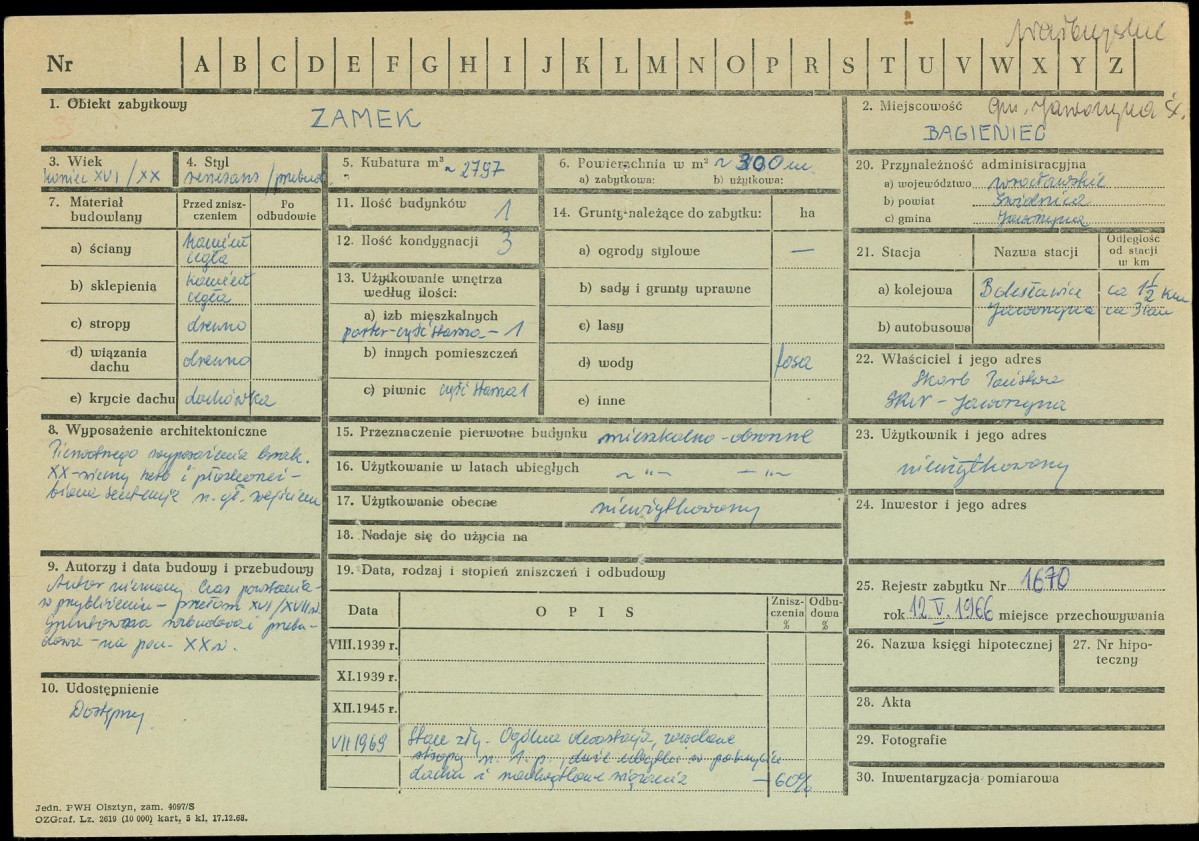 Wałbrzyskie
Nr A B C D E F G H I J K L M N O P R S T U V W X Y Z
1. Obiekt zabytkowy
ZAMEK
2. Miejscowość Gm. Jaworzyna Śl.
BAGIENIEC
3. Wiek
koniec XVI/XX
4. Styl
renesans/przebud
5. Kubatura m³ ~ 2797
6. Powierzchnia w m² ~ 300 m
a) zabytkowa: b) użytkowa:
7. Materiał budowlany
Przed zniszczeniem
Po odbudowie
a) ściany kamień cegła
b) sklepienia kamień cegła
c) stropy drewno
d) wiązania dachu drewno
e) krycie dachu dachówka
8. Wyposażenie architektoniczne
Pierwotnego wyposażenia brak.
XX-wieczny herb i płaskorzeź-
biona sentencja n. gł. wejściem
9. Autorzy i data budowy i przebudowy
Autor nieznany. Czas powstania -
w przybliżeniu - przełom XVI/XVII w.
Gruntowna rozbudowa i przebu-
dowa - na pocz. XX w.
10. Udostępnienie
Dostępny
11. Ilość budynków 1
12. Ilość kondygnacji 3
13. Użytkowanie wnętrza
według ilości:
a) izb mieszkalnych
parter-część - 1
b) innych pomieszczeń
c) piwnic część 1
14. Grunty należące do zabytku: ha
a) ogrody stylowe —
b) sady i grunty uprawne
c) lasy
d) wody fosa
e) inne
15. Przeznaczenie pierwotne budynku mieszkalno-obronne
16. Użytkowanie w latach ubiegłych ~ "~ — "~
17. Użytkowanie obecne nieużytkowany
18. Nadaje się do użycia na
19. Data, rodzaj i stopień zniszczeń i odbudowy
Data O P I S Zniszczenia % Odbudowa %
VIII.1939 r.
XI.1939 r.
XII.1945 r.
VII 1969 Stan zły. Ogólna dewastacja, zawalone
stropy n. I. p., duże ubytki w pokryciu
dachu i nadwątlone wiązania — 60%
20. Przynależność administracyjna
a) województwo wrocławskie
b) powiat Świdnica
c) gmina Jaworzyna
21. Stacja Nazwa stacji Odległość od stacji w km
a) kolejowa Bolesławice ca 1½ km
b) autobusowa Jaworzyna ca 3 km
22. Właściciel i jego adres
Skarb Państwa
Jaworzyna
23. Użytkownik i jego adres
nieużytkowany
24. Inwestor i jego adres
25. Rejestr zabytku Nr 1670
rok 12 V. 1966 miejsce przechowywania
26. Nazwa księgi hipotecznej
27. Nr hipoteczny
28. Akta
29. Fotografie
30. Inwentaryzacja pomiarowa
Jedn. PWH Olsztyn, zam. 4097/S
OZGraf. Lz. 2619 (10 000) kart, 5 kl. 17.12.68.